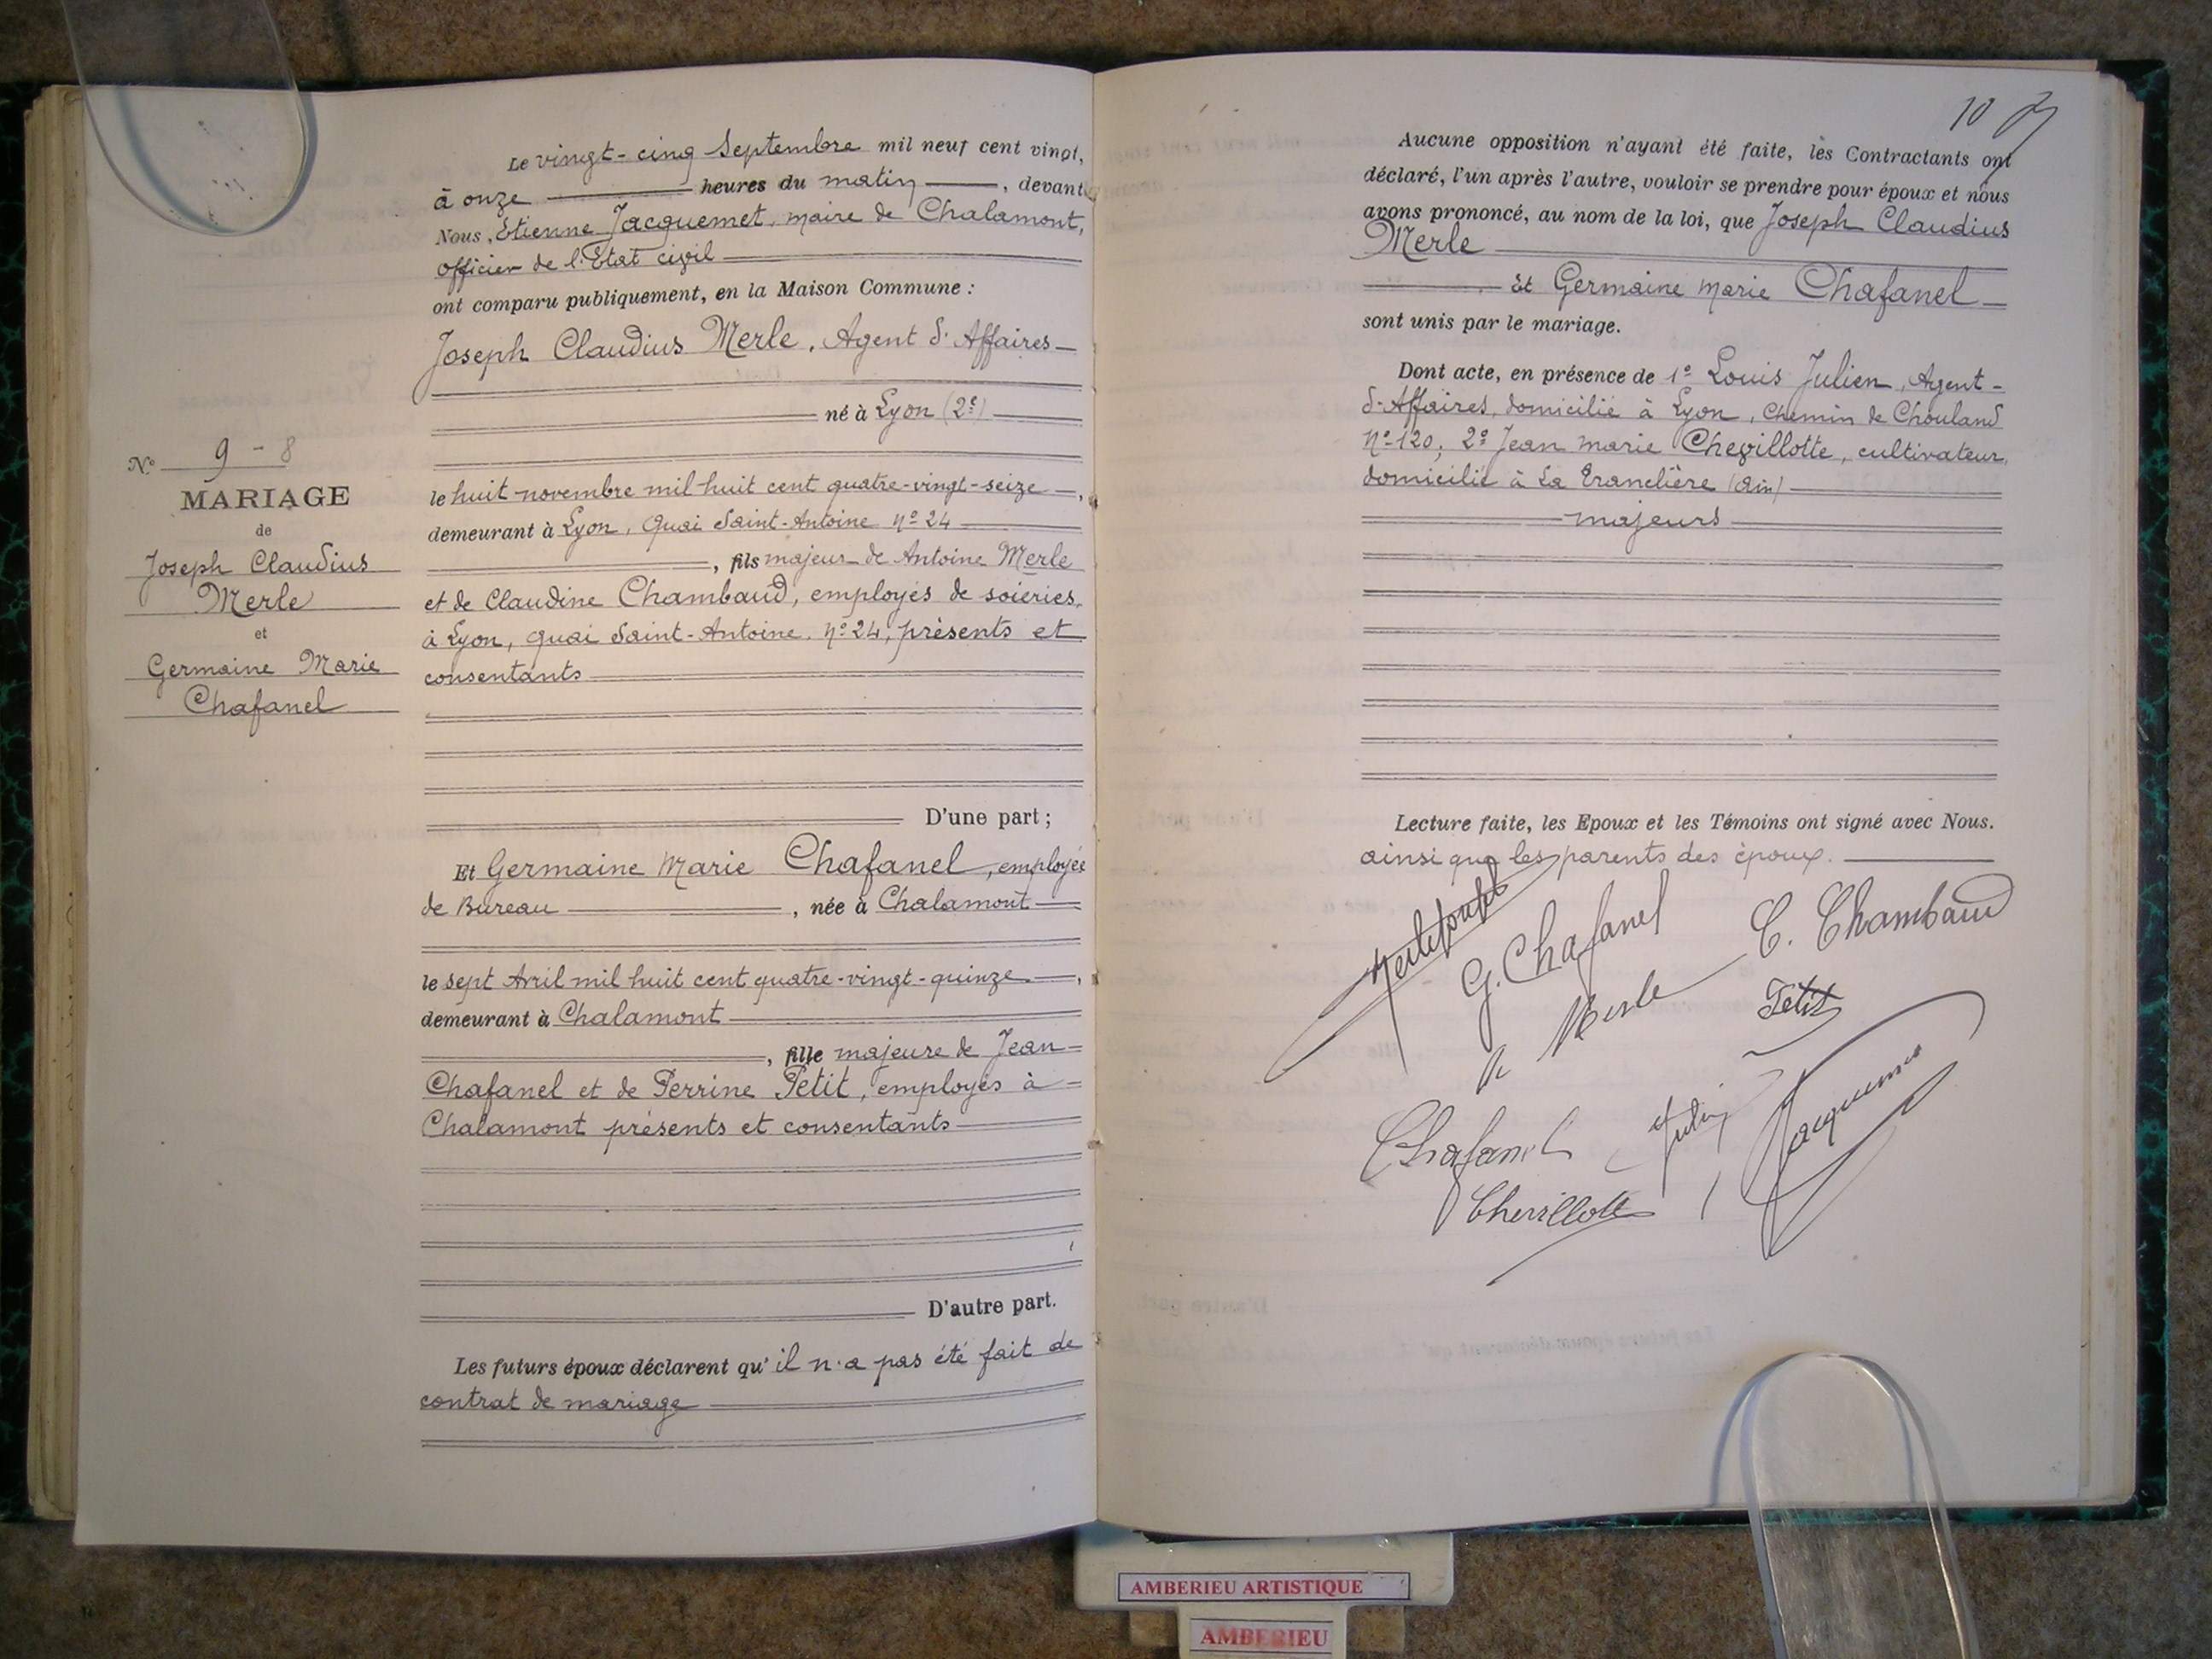 Le vingt-cinq Septembre mil neuf cent vingt,
à onze heures du matin, devant
Nous, Etienne Jacquemet, maire de Chalamont,
officier de l'Etat civil
ont comparu publiquement, en la Maison Commune :
Joseph Claudius Merle, Agent d'Affaires
né à Lyon (2e)
le huit novembre mil huit cent quatre-vingt-seize,
demeurant à Lyon, Quai Saint-Antoine No 24
, fils majeur de Antoine Merle
et de Claudine Chambaud, employés de soieries,
à Lyon, quai Saint-Antoine, No 24, présents et
consentants
D'une part ;
Et Germaine Marie Chafanel, employée
de Bureau, née à Chalamont
le sept Avril mil huit cent quatre-vingt-quinze,
demeurant à Chalamont
, fille majeure de Jean
Chafanel et de Perrine Petit, employés à
Chalamont présents et consentants
D'autre part.
Les futurs époux déclarent qu'il n'a pas été fait de
contrat de mariage
No 9 - 8
MARIAGE
de
Joseph Claudius
Merle
et
Germaine Marie
Chafanel
10
Aucune opposition n'ayant été faite, les Contractants ont
déclaré, l'un après l'autre, vouloir se prendre pour époux et nous
avons prononcé, au nom de la loi, que Joseph Claudius
Merle
Et Germaine Marie Chafanel
sont unis par le mariage.
Dont acte, en présence de 1o Louis Julien, Agent-
d'Affaires, domicilié à Lyon, Chemin de Chouland
No 120; 2o Jean Marie Chevillotte, cultivateur,
domicilié à La Tranclière (Ain)
majeurs
Lecture faite, les Epoux et les Témoins ont signé avec Nous.
ainsi que les parents des époux.
G. Chafanel
C. Chambaud
Merle
Petit
Chafanel
Julien
Jacquemet
Chevillotte
AMBERIEU ARTISTIQUE
AMBERIEU